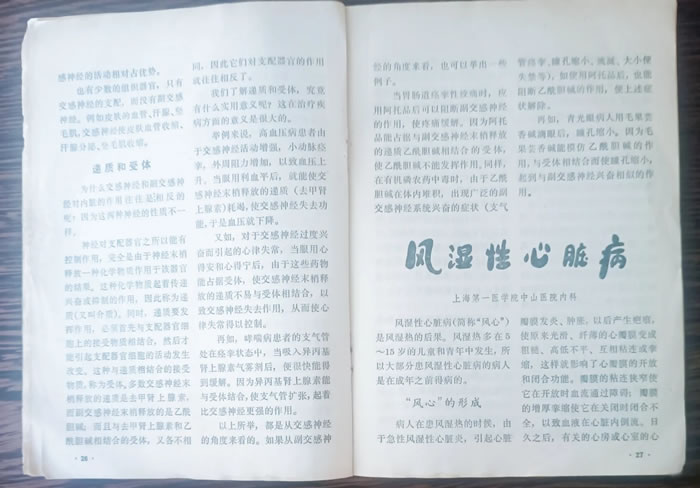 感神经的活动相对占优势。
也有少数的组织器官，只有
交感神经的支配，而没有副交感
神经。例如皮肤的血管、汗腺、竖
毛肌，交感神经使皮肤血管收缩、
汗腺分泌、竖毛肌收缩。
递质和受体
为什么交感神经和副交感神
经对内脏的作用往往是相反的
呢？因为这两种神经的性质不一
样。
神经对支配器官之所以能有
控制作用，完全是由于神经末梢
释放一种化学物质作用于该器官
的结果。这种化学物质起着传递
兴奋或抑制的作用，因此称为递
质(又叫介质)。同时，递质要发
挥作用，必须首先与支配器官细
胞上的接受物质相结合，然后才
能引起支配器官细胞的活动发生
改变。这种与递质相结合的接受
物质，称为受体。多数交感神经末
梢释放的递质是去甲肾上腺素，
而副交感神经末梢释放的是乙酰
胆碱；而且与去甲肾上腺素和乙
酰胆碱相结合的受体，又各不相
·26·
同，因此它们对支配器官的作用
就往往相反了。
我们了解递质和受体，究竟
有什么实用意义呢？这在治疗疾
病方面的意义是很大的。
举例来说，高血压病患者由
于交感神经活动增强，小动脉痉
挛，外周阻力增加，以致血压上
升。当服用利血平后，就能使交
感神经末梢释放的递质（去甲肾
上腺素）耗竭，使交感神经失去功
能，于是血压就下降。
又如，对于交感神经过度兴
奋而引起的心律失常，当服用心
得安和心得宁后，由于这些药物
能占据受体，使交感神经末梢释
放的递质不易与受体相结合，以
致交感神经失去作用，从而使心
律失常得以控制。
再如，哮喘病患者的支气管
处在痉挛状态中，当吸入异丙基
肾上腺素气雾剂后，便很快能得
到缓解。因为异丙基肾上腺素能
与受体结合，使支气管扩张，起着
比交感神经更强的作用。
以上所举，都是从交感神经
的角度来看的。如果从副交感神
经的角度来看，也可以举出一些
例子。
当胃肠道痉挛性绞痛时，应
用阿托品后可以阻断副交感神经
的作用，使疼痛缓解。因为阿托
品能占据与副交感神经末梢释放
的递质乙酰胆碱相结合的受体，
使乙酰胆碱不能发挥作用。同样，
在有机磷农药中毒时，由于乙酰
胆碱在体内堆积，出现广泛的副
交感神经系统兴奋的症状（支气
管痉挛、瞳孔缩小、流涎、大小便
失禁等），如使用阿托品后，也能
阻断乙酰胆碱的作用，使上述症
状解除。
再如，青光眼病人用毛果芸
香碱滴眼后，瞳孔缩小。因为毛
果芸香碱能模仿乙酰胆碱的作
用，与受体相结合而使瞳孔缩小，
起到与副交感神经兴奋相似的作
用。
风湿性心脏病
上海第一医学院中山医院内科
风湿性心脏病(简称“风心”)
是风湿热的后果。风湿热多在5
～15岁的儿童和青年中发生，所
以大部分患风湿性心脏病的病人
是在成年之前得病的。
“风心”的形成
病人在患风湿热的时候，由
于急性风湿性心脏炎，引起心脏
瓣膜发炎、肿胀，以后产生疤痕，
使原来光滑、纤薄的心瓣膜变成
粗糙、高低不平、互相粘连或挛
缩，这样就影响了心瓣膜的开放
和闭合功能。瓣膜的粘连狭窄使
它在开放时血流通过障碍；瓣膜
的增厚挛缩使它在关闭时闭合不
全，以致血液在心脏内倒流。日
久之后，有关的心房或心室的心
·27·